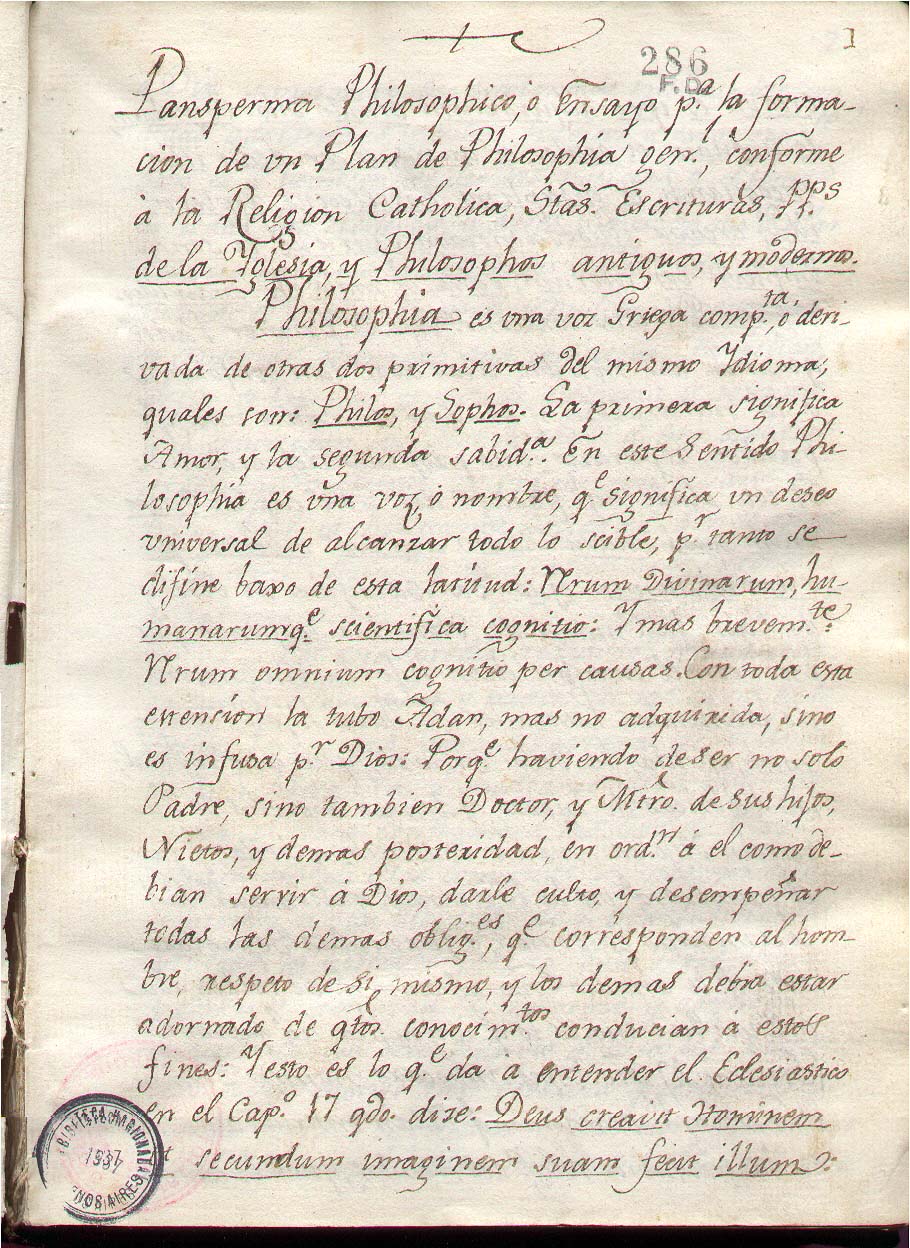 1
286
F.D.
Pansperma Philosophico, ó Ensayo p.a la forma-
cion de vn Plan de Philosophia gen.l, conforme
à la Religion Catholica, Stas. Escrituras, PP.s
de la Yglesia, y Philosophos antiguos, y modernos.
Philosophia es vna voz Griega comp.ta, ó deri-
vada de otras dos primitivas del mismo Idioma,
quales son: Philos, y Sophos. La primera significa
Amor, y la segunda sabid.a. En este Sentido Phi-
losophia es vna voz, ó nombre, q.e significa vn deseo
vniversal de alcanzar todo lo scible, p.r tanto se
difine baxo de esta latitud: Rrum Divinarum, hu-
manarumq.e scientifica cognitio: Y mas brevem.te:
Rrum omnium cognitio per causas. Con toda esta
extencion la tubo Adan, mas no adquirida, sino
es infusa p.r Dios: Porq.e haviendo de ser no solo
Padre, sino tambien Doctor, y Mtro. de sus hijos,
Nietos, y demas posteridad, en ord.n á el como de-
bian servir á Dios, darle culto, y desempeñar
todas las demas oblig.es, q.e corresponden al hom-
bre, respeto de Si mismo, y los demas debia estar
adornado de qtos. conocim.tos conducian á estos
fines: Y esto es lo q.e da à entender el Eclesiastico
en el Cap.o 17 qdo. dize: Deus creavit Hominem
et secundum imaginem suam fecit illum:
BIBLIOTECA NACIONAL
1937
BUENOS AIRES